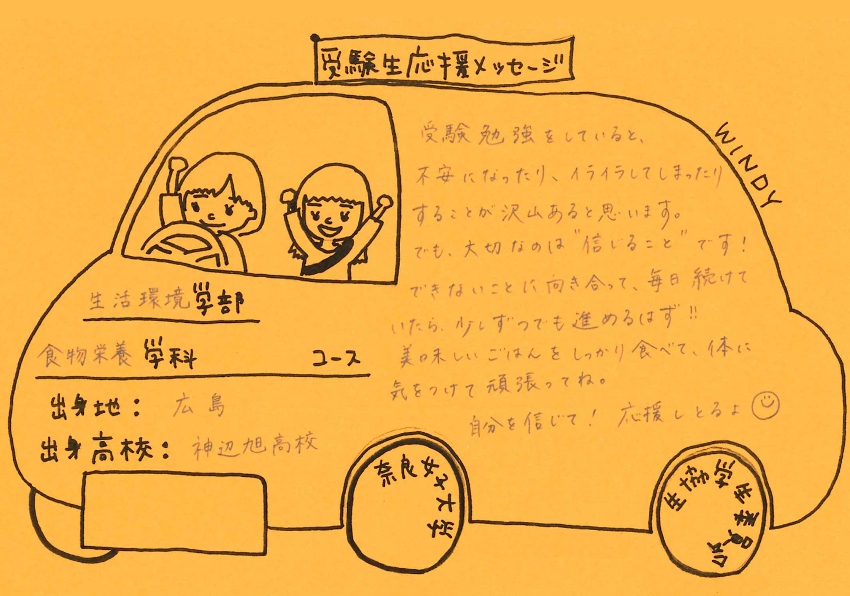 受験生応援メッセージ
WINDY
受験勉強をしていると、
不安になったり、イライラしてしまったり
することが沢山あると思います。
でも、大切なのは"信じること"です！
できないことに向き合って、毎日続けて
いたら、少しずつでも進めるはず!!
美味しいごはんをしっかり食べて、体に
気をつけて頑張ってね。
自分を信じて！ 応援しとるよ
生活環境学部
食物栄養学科 コース
出身地：広島
出身高校：神辺旭高校
奈良女子大学
生協学生委員会